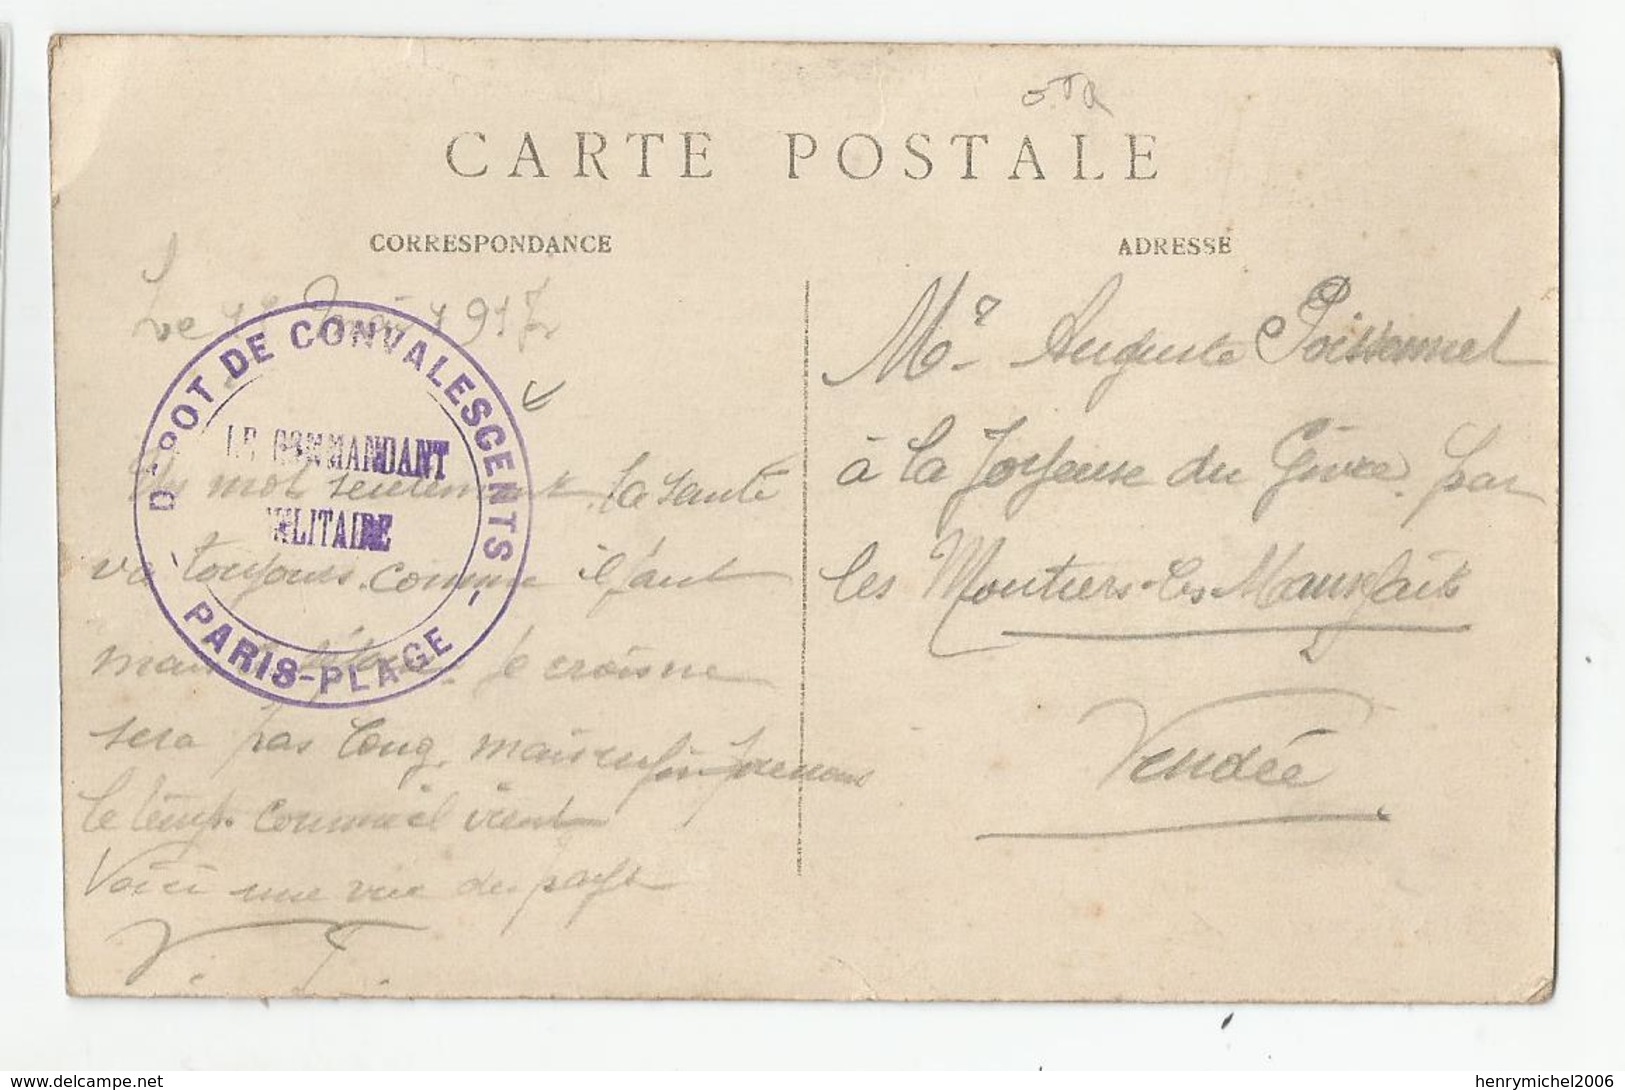 CARTE POSTALE
CORRESPONDANCE
ADRESSE
Le 1917
DEPOT DE CONVALESCENTS
LE COMMANDANT
MILITAIRE
- PARIS-PLAGE -
mot seulement la santé
va toujours comme il faut
je croisne
sera pas long, mais enfin prenons
le temps comme il vient
Voici une vue du pays
Mr Auguste Poissonnet
à la Joyeuse du Givre par
les Moutiers-les-Mauxfaits
Vendée
delcampe.net
henrymichel2006